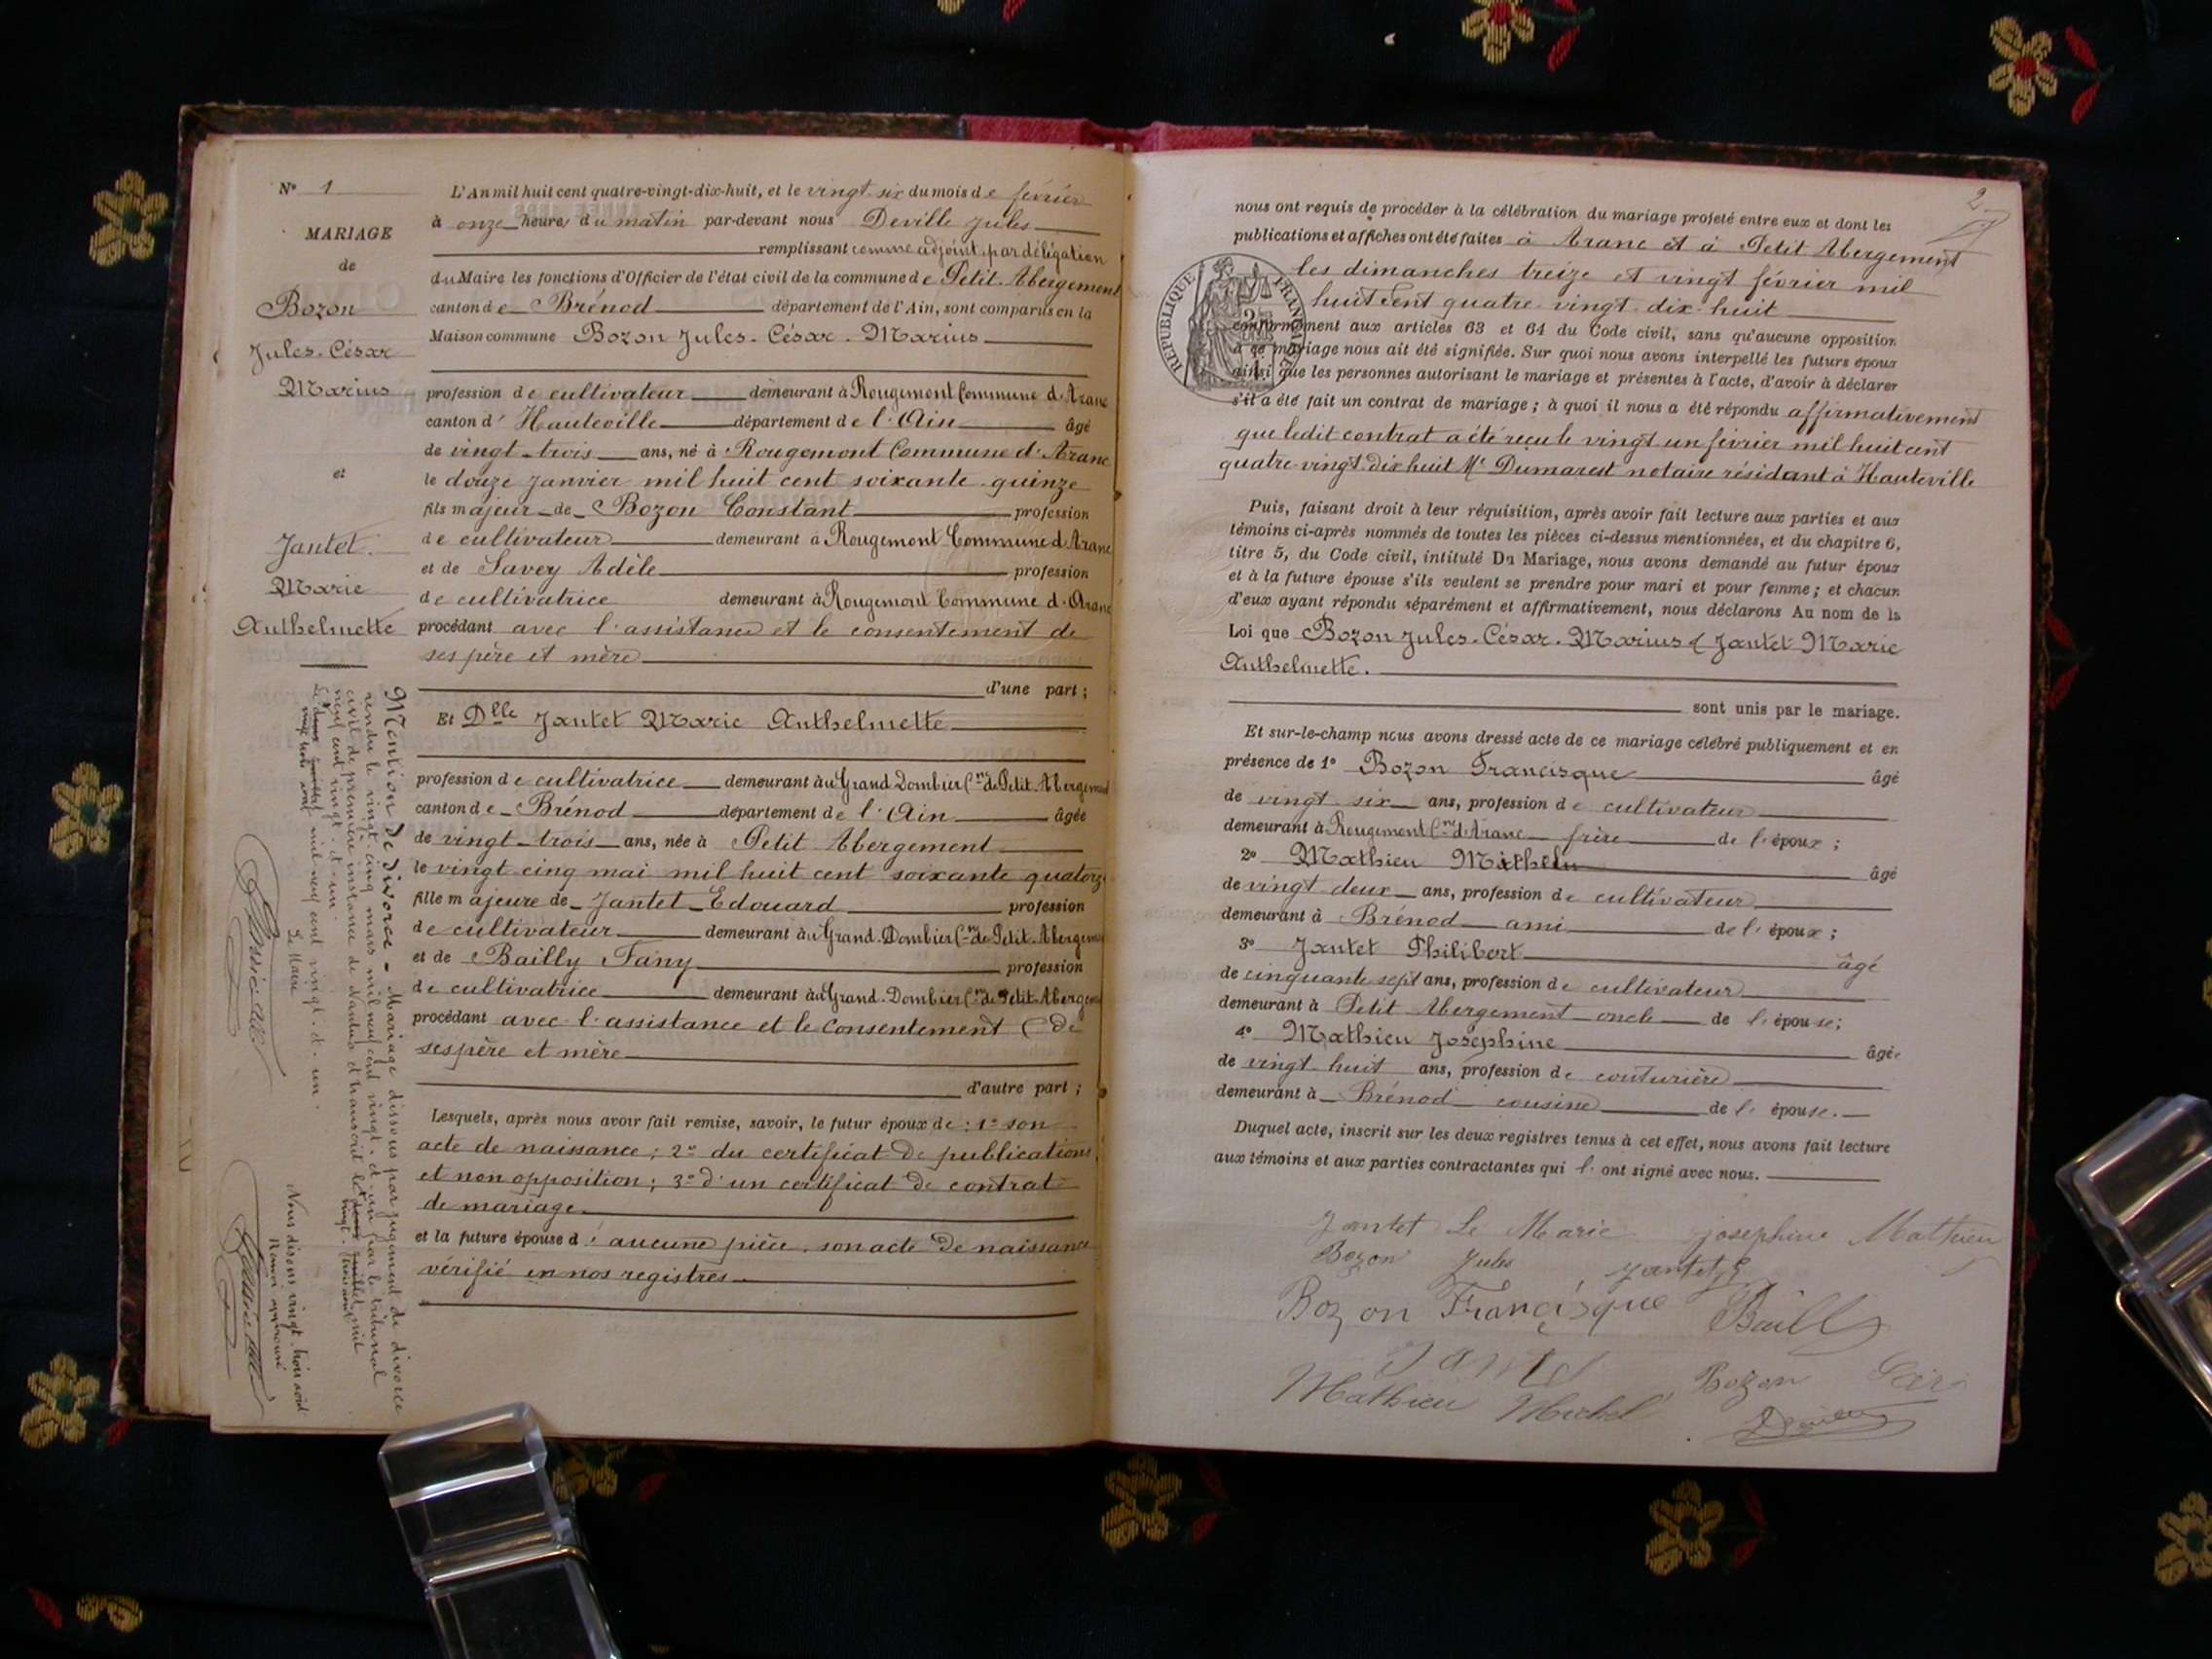 N° 1
MARIAGE
de
Bozon
Jules-César
Marius
et
Jantet
Marie
Anthelmette
L'An mil huit cent quatre-vingt-dix-huit, et le vingt six du mois de février
à onze heures du matin par-devant nous Deville Jules
remplissant comme adjoint, par délégation
du Maire les fonctions d'Officier de l'état civil de la commune de Petit-Abergement
canton de Brénod département de l'Ain, sont comparus en la
Maison commune Bozon Jules-César-Marius
profession de cultivateur demeurant à Rougemont Commune d'Aranc
canton d'Hauteville département de l'Ain âgé
de vingt-trois ans, né à Rougemont Commune d'Aranc
le douze Janvier mil huit cent soixante-quinze
fils majeur de Bozon Constant profession
de cultivateur demeurant à Rougemont Commune d'Aranc
et de Savey Adèle profession
de cultivatrice demeurant à Rougemont Commune d'Aranc
procédant avec l'assistance et le consentement de
ses père et mère
d'une part;
Et Dlle Jantet Marie Anthelmette
profession de cultivatrice demeurant au Grand-Dombier Cne de Petit-Abergement
canton de Brénod département de l'Ain âgée
de vingt-trois ans, née à Petit Abergement
le vingt cinq mai mil huit cent soixante quatorze
fille majeure de Jantet Edouard profession
de cultivateur demeurant au Grand-Dombier Cne de Petit-Abergement
et de Bailly Fany profession
de cultivatrice demeurant au Grand-Dombier Cne de Petit-Abergement
procédant avec l'assistance et le consentement de
ses père et mère
d'autre part;
Lesquels, après nous avoir fait remise, savoir, le futur époux de: 1° son
acte de naissance; 2° du certificat de publications
et non opposition; 3° d'un certificat de contrat
de mariage
et la future épouse d'aucune pièce, son acte de naissance
vérifié en nos registres
Mention de divorce - Mariage dissous par jugement de divorce
rendu le vingt cinq mars mil neuf cent vingt-et-un par le tribunal
civil de première instance de Nantua et transcrit le deux juillet mil
neuf cent vingt-et-un vingt-trois août
Le deux juillet mil neuf cent vingt-et-un.
vingt trois août
Le Maire
Nous disons vingt-trois août
Renvoi approuvé
2
nous ont requis de procéder à la célébration du mariage projeté entre eux et dont les
publications et affiches ont été faites à Aranc et à Petit Abergement
les dimanches treize et vingt février mil
huit cent quatre-vingt-dix-huit
RÉPUBLIQUE FRANÇAISE
conformément aux articles 63 et 64 du Code civil, sans qu'aucune opposition
à ce mariage nous ait été signifiée. Sur quoi nous avons interpellé les futurs époux
ainsi que les personnes autorisant le mariage et présentes à l'acte, d'avoir à déclarer
s'il a été fait un contrat de mariage; à quoi il nous a été répondu affirmativement
que ledit contrat a été reçu le vingt un février mil huit cent
quatre-vingt-dix huit Me Dumarest notaire résidant à Hauteville
Puis, faisant droit à leur réquisition, après avoir fait lecture aux parties et aux
témoins ci-après nommés de toutes les pièces ci-dessus mentionnées, et du chapitre 6,
titre 5, du Code civil, intitulé Du Mariage, nous avons demandé au futur époux
et à la future épouse s'ils veulent se prendre pour mari et pour femme; et chacun
d'eux ayant répondu séparément et affirmativement, nous déclarons Au nom de la
Loi que Bozon Jules-César-Marius & Jantet Marie
Anthelmette.
sont unis par le mariage.
Et sur-le-champ nous avons dressé acte de ce mariage célébré publiquement et en
présence de 1° Bozon Francisque âgé
de vingt-six ans, profession de cultivateur
demeurant à Rougemont Cne d'Aranc frère de l'époux;
2° Mathieu Michel âgé
de vingt deux ans, profession de cultivateur
demeurant à Brénod ami de l'époux;
3° Jantet Philibert âgé
de cinquante sept ans, profession de cultivateur
demeurant à Petit Abergement oncle de l'épouse;
4° Mathieu Joséphine âgée
de vingt huit ans, profession de couturière
demeurant à Brénod cousine de l'épouse.
Duquel acte, inscrit sur les deux registres tenus à cet effet, nous avons fait lecture
aux témoins et aux parties contractantes qui l'ont signé avec nous.
Jantet Marie josephine Mathieu
Bozon Jules Jantet
Bozon Francisque Bailly
Bozon
Mathieu Michel
Deville